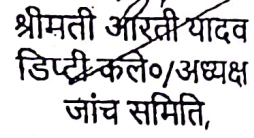 श्रीमती आरती यादव
डिप्टी कले०/अध्यक्ष
जांच समिति,